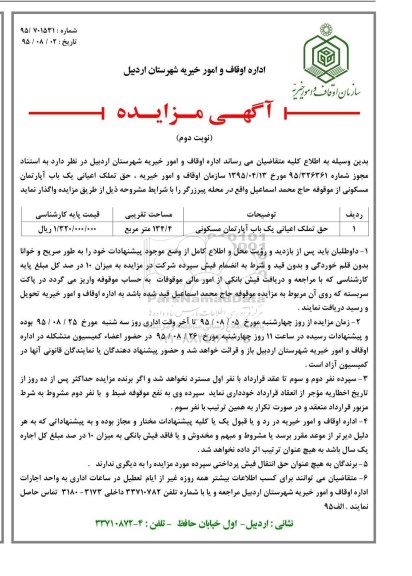 شماره : ۹۵/ ۷۰۱۵۳۱
تاریخ : ۰۲ / ۰۸ / ۹۵
سازمان اوقاف و امور خیریه
اداره اوقاف و امور خیریه شهرستان اردبیل
آگهی مزایده
(نوبت دوم)
بدین وسیله به اطلاع کلیه متقاضیان می رساند اداره اوقاف و امور خیریه شهرستان اردبیل در نظر دارد به استناد
مجوز شماره ۹۵/۳۲۶۳۶۱ مورخ ۱۳۹۵/۰۴/۱۳ سازمان اوقاف و امور خیریه ، حق تملک اعیانی یک باب آپارتمان
مسکونی از موقوفه حاج محمد اسماعیل واقع در محله پیرزرگر را با شرایط مشروحه ذیل از طریق مزایده واگذار نماید
ردیف توضیحات مساحت تقریبی قیمت پایه کارشناسی
۱ حق تملک اعیانی یک باب آپارتمان مسکونی ۱۳۴/۴ متر مربع ۱/۳۲۰/۰۰۰/۰۰۰ ریال
۱- داوطلبان باید پس از بازدید و رویت محل و اطلاع کامل از وضع موجود پیشنهادات خود را به طور صریح و خوانا
بدون قلم خوردگی و بدون قید و شرط به انضمام فیش سپرده شرکت در مزایده به میزان ۱۰ در صد کل مبلغ پایه
کارشناسی که با مراجعه و دریافت فیش بانکی از امور مالی موقوفات به حساب موقوفه واریز می گردد در پاکت
سربسته که روی آن مربوط به مزایده موقوفه حاج محمد اسماعیل قید شده باشد به اداره اوقاف و امور خیریه تحویل
و رسید دریافت نمایند .
۲ - زمان مزایده از روز چهارشنبه مورخ ۰۵ / ۰۸ / ۹۵ تا آخر وقت اداری روز سه شنبه مورخ ۲۵ / ۰۸ / ۹۵ بوده
و پیشنهادات رسیده در ساعت ۱۱ روز چهارشنبه مورخ ۲۶ / ۰۸ / ۹۵ در حضور اعضاء کمیسیون متشکله در اداره
اوقاف و امور خیریه شهرستان اردبیل باز و قرائت خواهد شد و حضور پیشنهاد دهندگان یا نمایندگان قانونی آنها در
کمیسیون آزاد است .
۳ - سپرده نفر دوم و سوم تا عقد قرارداد با نفر اول مسترد نخواهد شد و اگر برنده مزایده حداکثر پس از ده روز از
تاریخ اخطاریه مؤجر از انعقاد قرارداد خودداری نماید سپرده وی به نفع موقوفه ضبط و با نفر دوم مشروط به شرط
مزبور قرارداد منعقد و در صورت تکرار به همین ترتیب با نفر سوم .
۴ - اداره اوقاف و امور خیریه در رد و یا قبول یک یا کلیه پیشنهادات مختار و مجاز بوده و به پیشنهاداتی که به هر
دلیل دیرتر از موعد مقرر برسد یا مشروط و مبهم و مخدوش و یا فاقد فیش بانکی به میزان ۱۰ در صد مبلغ کل اجاره
یک سال باشد به هیچ عنوان ترتیب اثر داده نخواهد شد .
۵ - برندگان به هیچ عنوان حق انتقال فیش پرداختی سپرده مورد مزایده را به دیگری ندارند .
۶ - متقاضیان می توانند برای کسب اطلاعات بیشتر همه روزه غیر از ایام تعطیل در ساعات اداری به واحد اجارات
اداره اوقاف و امور خیریه شهرستان اردبیل مراجعه و یا با شماره تلفن ۳۳۷۱۰۷۸۲ داخلی ۳۱۷۳ - ۳۱۸۰ تماس حاصل
نمایند . الف۹۵
نشانی : اردبیل- اول خیابان حافظ - تلفن : ۴-۳۳۷۱۰۸۷۲